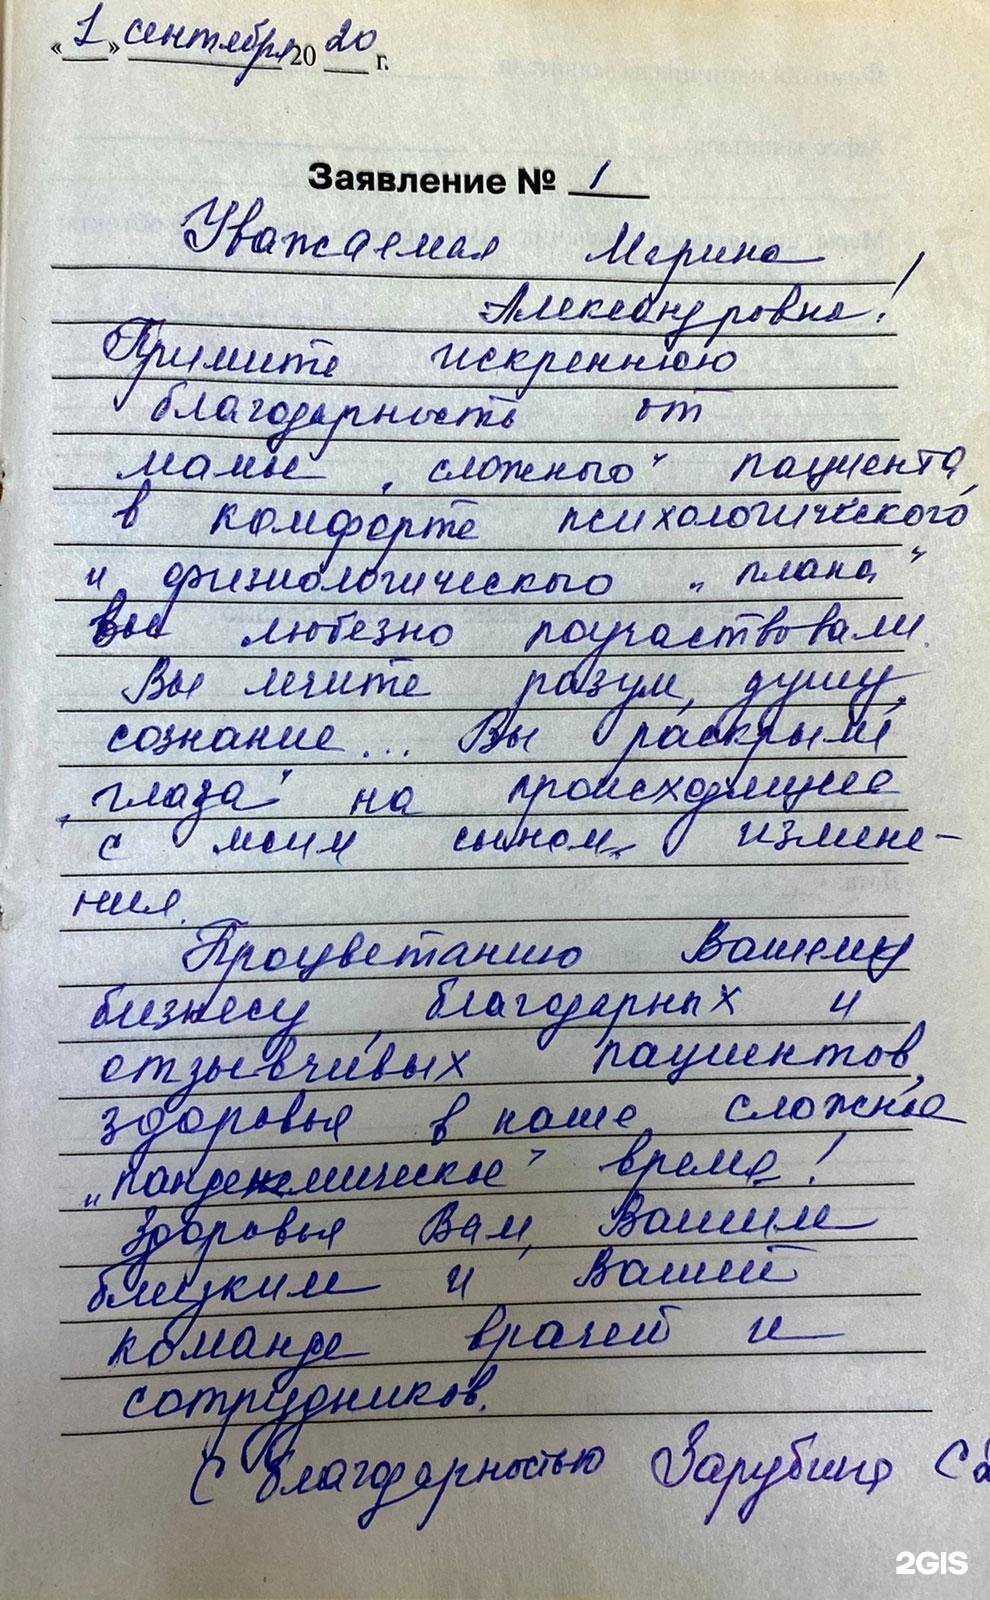 «1» сентября 20 20 г.
Заявление № 1
Уважаемая Марина
Александровна!
Примите искреннюю
благодарность от
мамы „сложного" пациента,
в комфорте психологического
и физиологического „плана"
Вы любезно поучаствовали.
Вы лечите разум, душу,
сознание... Вы раскрыли
„глаза" на происходящие
с моим сыном измене-
ния.
Процветанию Вашему
бизнесу, благодарных и
отзывчивых пациентов,
здоровья в наше сложное
„пандемическое" время!
Здоровья Вам, Вашим
близким и Вашей
команде врачей и
сотрудников.
С благодарностью Зарубина С
2GIS